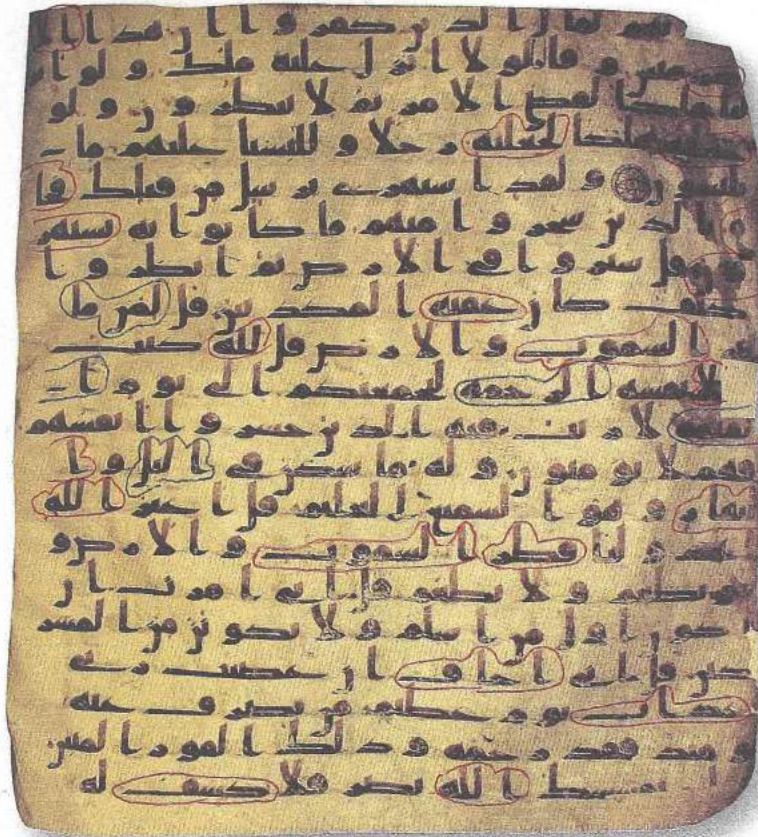 بايديهم لقال الذين كفروا ان هذا الا
سحر مبين وقالوا لولا انزل عليه ملك ولو ا
نزلنا ملكا لقضي الامر ثم لا ينظرون ولو
جعلنه ملكا لجعلنه رجلا وللبسنا عليهم ما
يلبسون ولقد استهزى برسل من قبلك فحا
ق بالذين سخروا منهم ما كانوا به يستهز
ون قل سيروا في الارض ثم انظروا
كيف كان عقبة المكذبين قل لمن ما
في السموت والارض قل لله كتب
على نفسه الرحمة ليجمعنكم الى يوم ا
لقيمة لا ريب فيه الذين خسروا انفسهم
فهم لا يومنون وله ما سكن في اليل وا
لنهار وهو السميع العليم قل اغير الله
اتخذ وليا فطر السموت والارض و
هو يطعم ولا يطعم قل اني امرت ان
اكون اول من اسلم ولا تكونن من المشر
كين قل اني اخاف ان عصيت ربي
عذاب يوم عظيم من يصرف عنه
يومئذ فقد رحمه وذلك الفوز المبين
وان يمسسك الله بضر فلا كشف له